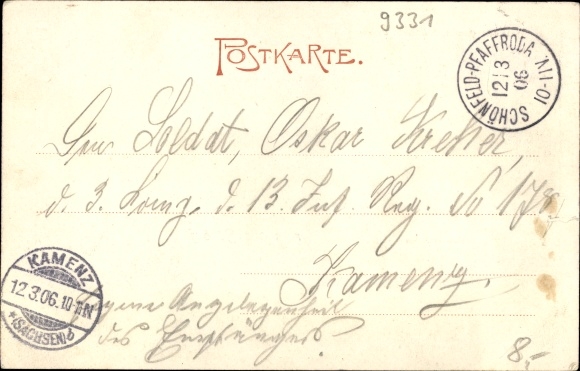 9331
POSTKARTE.
SCHÖNFELD-PFAFFRODA XII-01
12/3
06
Soldat, Oskar
d. 3. Komp. d. 13. Inf. Reg. No 178
Kamenz
KAMENZ
12.3.06.10-11N
*(SACHSEN)b
Eigene Angelegenheit
des Empfängers
8.-